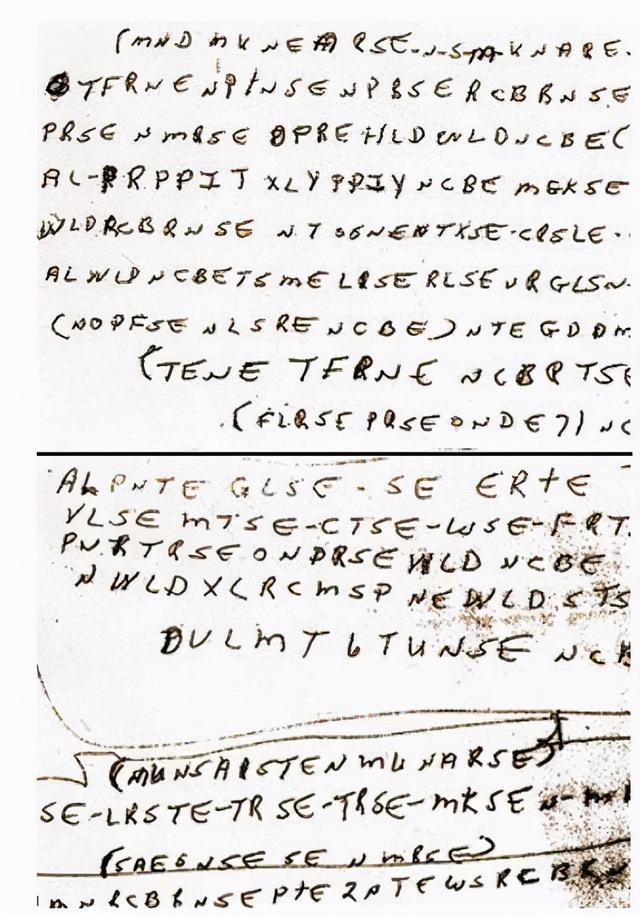 (MND MK NEARSE-N-S-M-KNARE.
TFRNE NPINSE NPBSE RCBRNSE
PRSE N MRSE OPREHLD WLD NCBE(
AL-PRPPIT XLY PPIY NCBE MGKSE
WLDRCBRNSE NT SGNENTXSE-CRSLE-
ALWLD NCBETSME LRSE RLSEURGLSN
(NOPFSE NLSRE NCBE) NTEGDDM
(TENE TFRNE NCBRTSE
(FLRSE PRSE ONDE71 NC
ALPNTE GLSE-SE ERTE
VLSE MTSE-CTSE-WSE-FRT
PNRTRSE ONDRSE WLD NCBE
N WLD XLRCMSP NEWLD STS
DULMT 6 TUNSE NC
(MUNSARSTEN MU NARSE)
SE-LRSTE-TRSE-TRSE-MKSE N-M
(SAE6NSE SE N MBSE)
MNRCBRNSE PTE2PTEWSRCBR